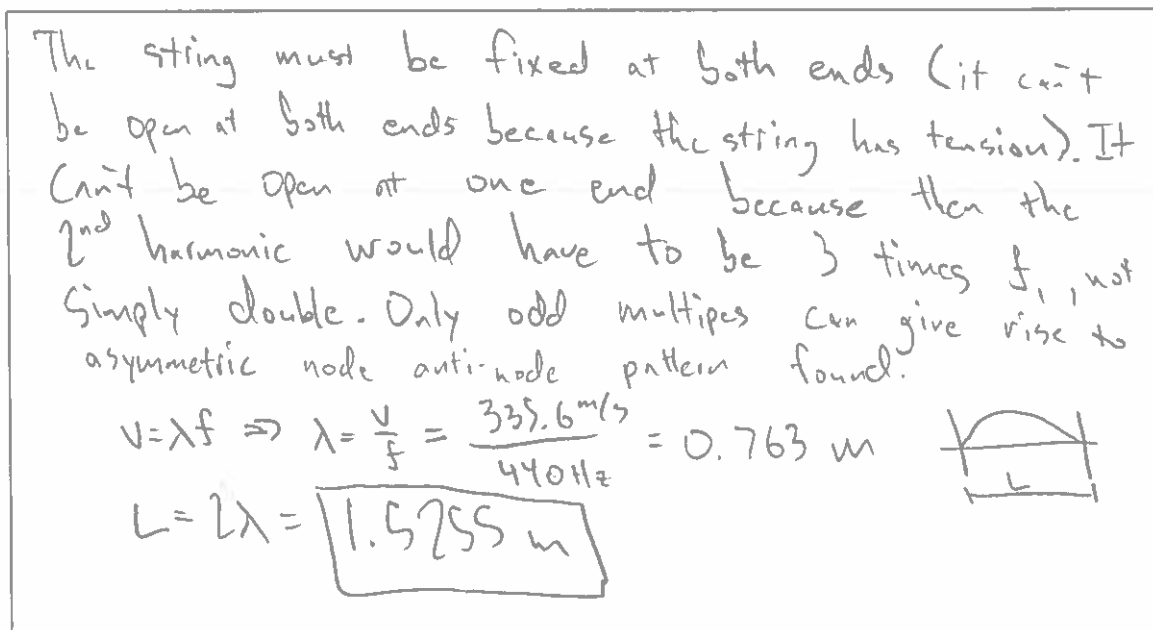 The string must be fixed at both ends (it can't
be open at both ends because the string has tension). It
Can't be open at one end because then the
2nd harmonic would have to be 3 times f₁, not
Simply double. Only odd multipes can give rise to
asymmetric node anti-node pattern found.
V=λf ⇒ λ= V/f = 335.6 m/s / 440 Hz = 0.763 m
L
L = 2λ = 1.5255 m